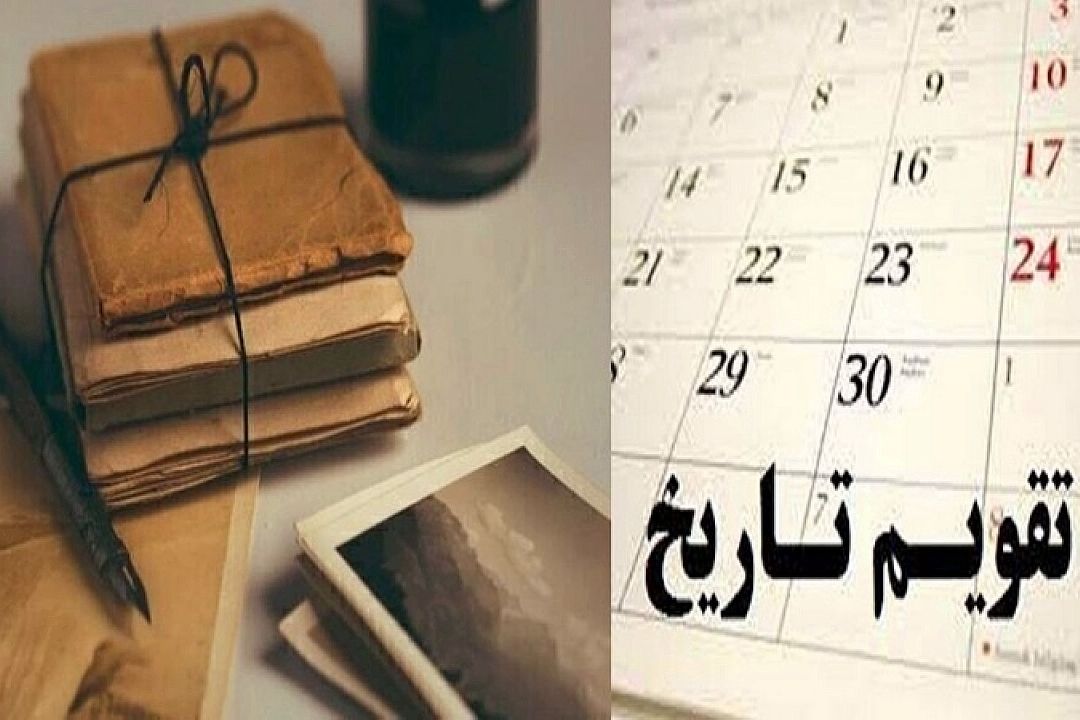 1 2 3
6 7 8 9 10
14 15 16 17
21 22 23 24
29 30 1
7 8
تقویم تاریخ